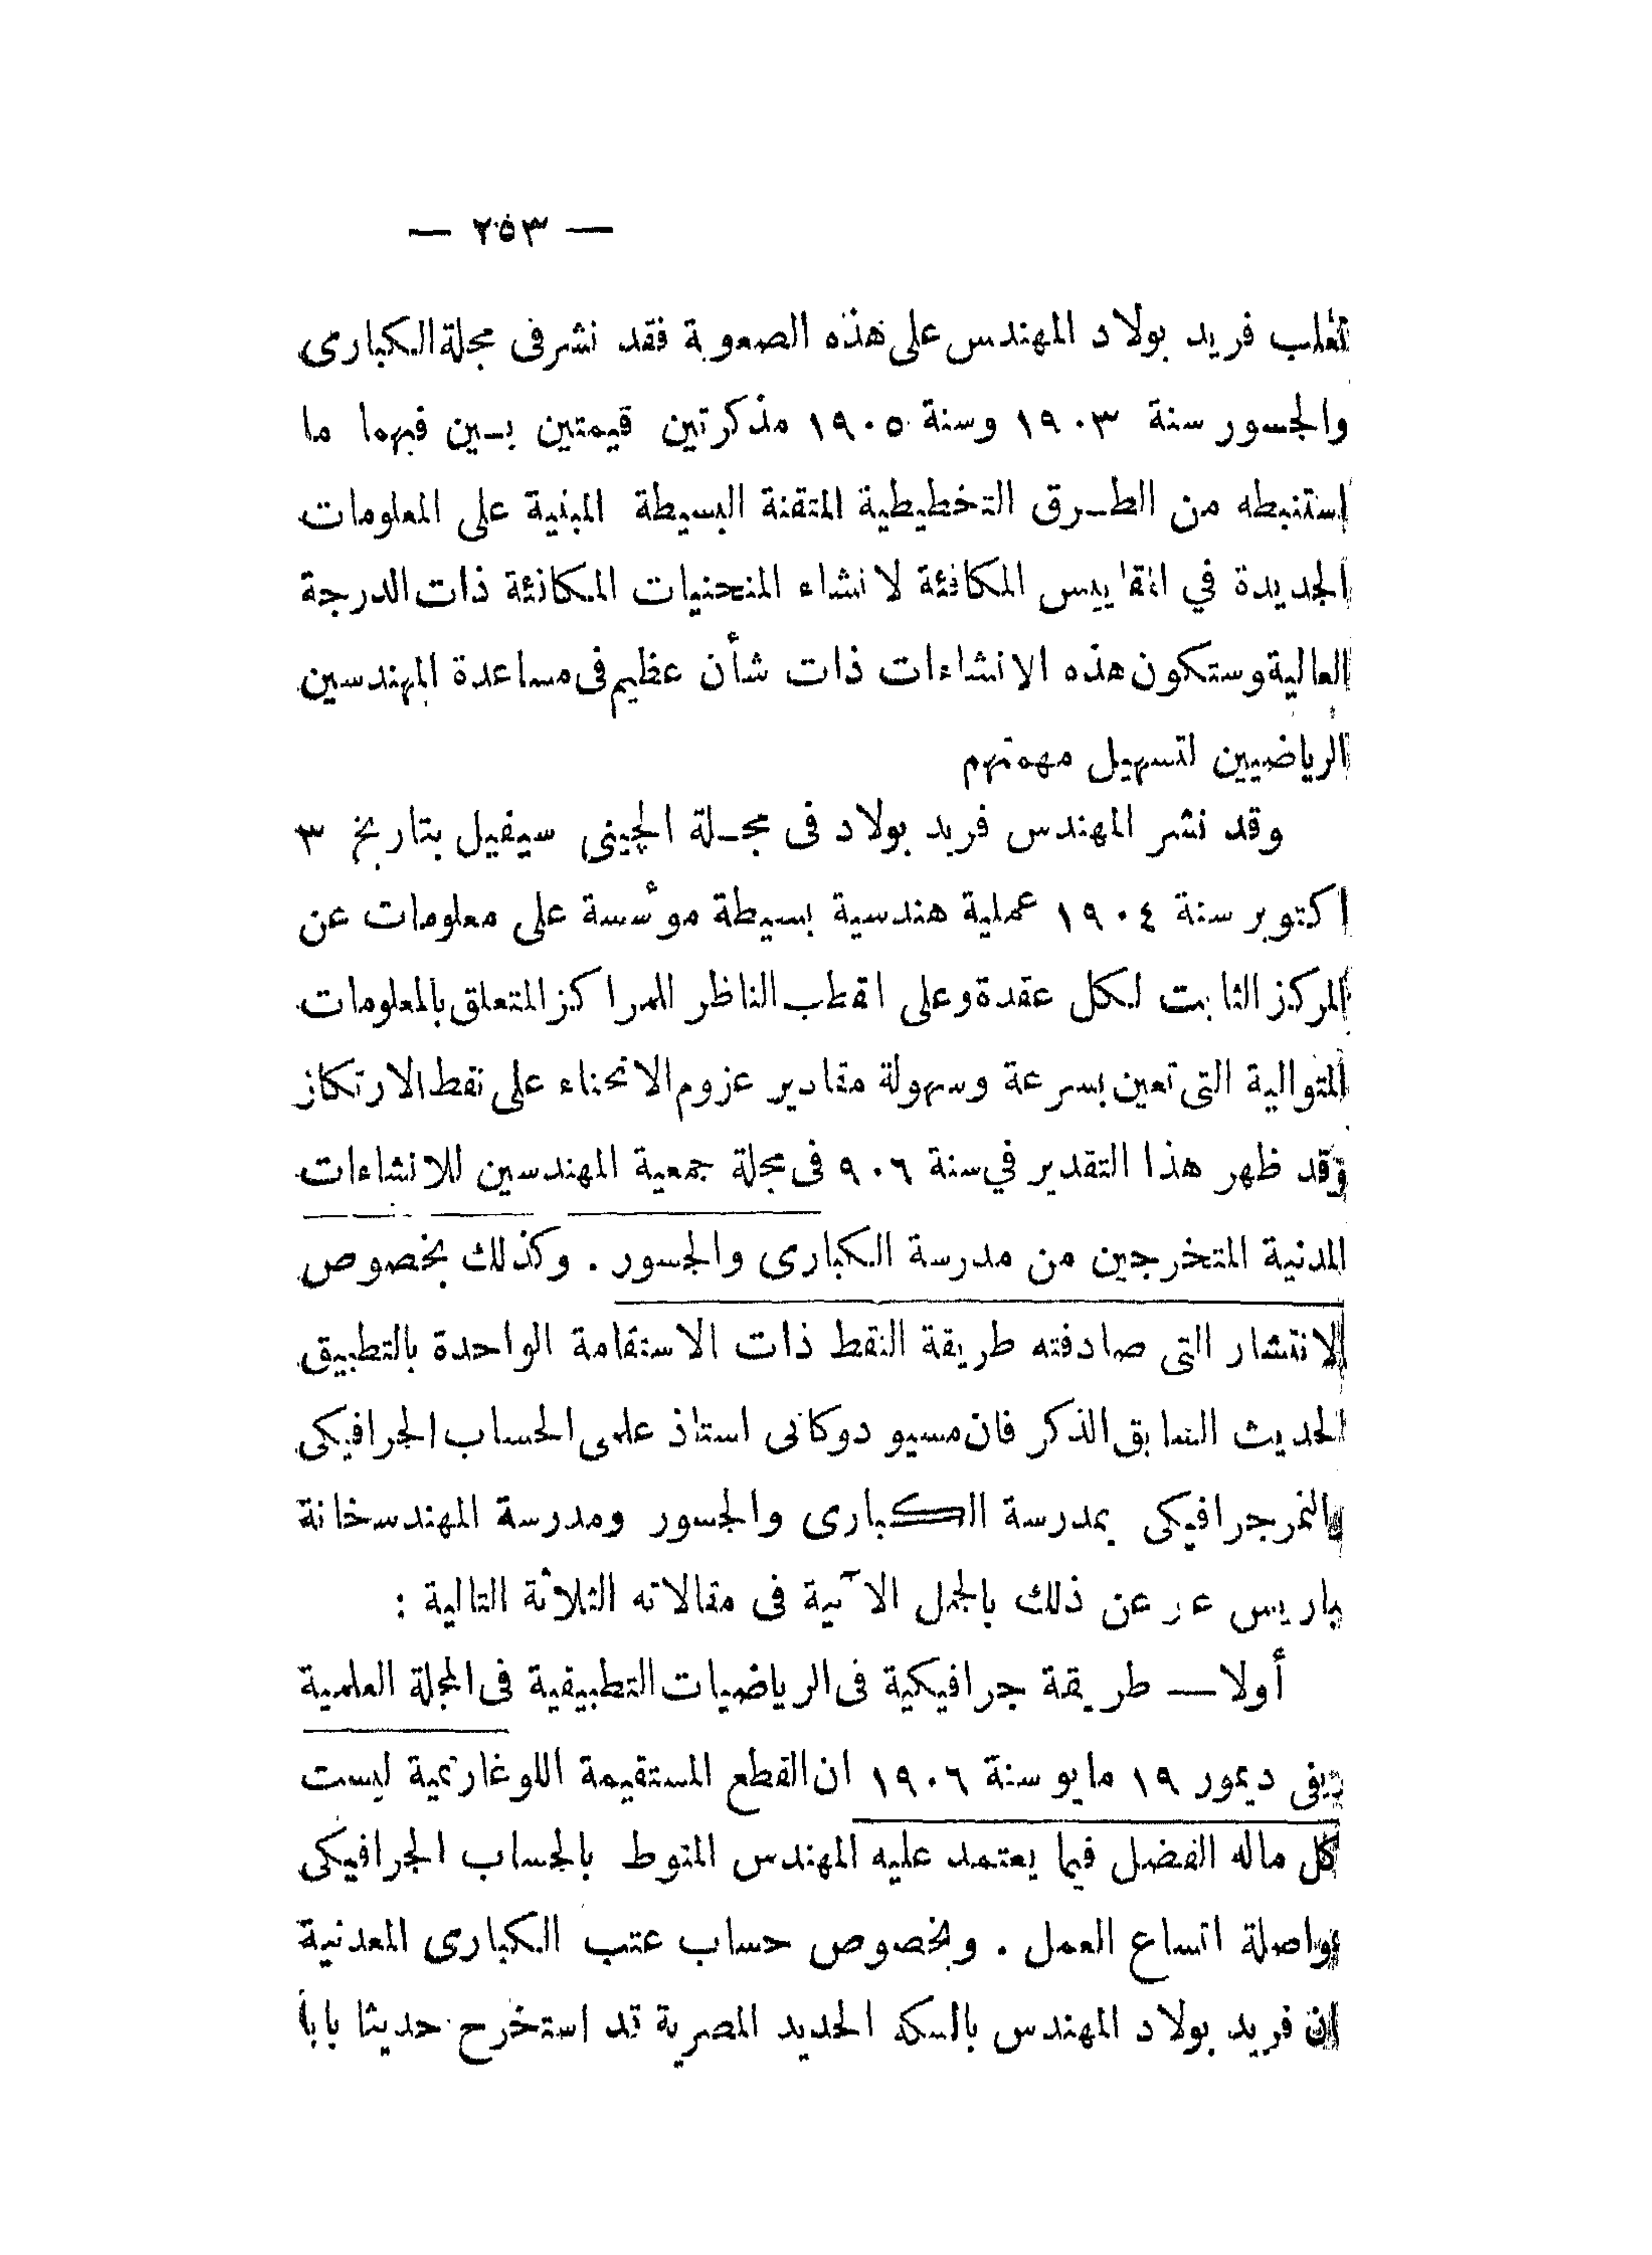 — ٢٥٣ —
تغلب فريد بولاد المهندس على هذه الصعوبة فقد نشر فى مجلة الكبارى
والجسور سنة ١٩٠٣ وسنة ١٩٠٥ مذكرتين قيمتين بين فيهما ما
استنبطه من الطرق التخطيطية المتقنة البسيطة المبنية على المعلومات
الجديدة في المقاييس المكافئة لانشاء المنحنيات المكافئة ذات الدرجة
العالية وستكون هذه الانشاءات ذات شأن عظيم فى مساعدة المهندسين
الرياضيين لتسهيل مهمتهم
وقد نشر المهندس فريد بولاد فى مجلة الچينى سيفيل بتاريخ ٣
اكتوبر سنة ١٩٠٤ عملية هندسية بسيطة موٴسسة على معلومات عن
المركز الثابت لكل عقدة وعلى القطب الناظر للمراكز المتعلق بالمعلومات
المتوالية التى تعين بسرعة وسهولة مقادير عزوم الانحناء على نقط الارتكاز
وقد ظهر هذا التقدير في سنة ٩٠٦ فى مجلة جمعية المهندسين للانشاءات
المدنية المتخرجين من مدرسة الكبارى والجسور . وكذلك بخصوص
الانتشار التى صادفته طريقة النقط ذات الاستقامة الواحدة بالتطبيق
الحديث السابق الذكر فان مسيو دوكانى استاذ علمى الحساب الجرافيكى
والنمرجرافيكى بمدرسة الكبارى والجسور ومدرسة المهندسخانة
بباريس عبر عن ذلك بالجمل الآتية فى مقالاته الثلاثة التالية :
أولا — طريقة جرافيكية فى الرياضيات التطبيقية فى المجلة العلمية
ديمور ١٩ مايو سنة ١٩٠٦ ان القطع المستقيمة اللوغارتمية ليست
كل ماله الفضل فيما يعتمد عليه المهندس المنوط بالحساب الجرافيكى
اتساع العمل . وبخصوص حساب عتب الكبارى المعدنية
ان فريد بولاد المهندس بالسكة الحديد المصرية قد استخرج حديثا بابا